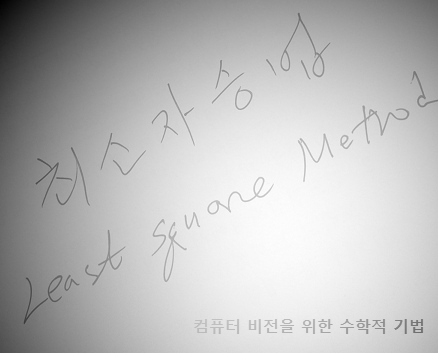 최소자승법
Least Square Method
컴퓨터 비전을 위한 수학적 기법